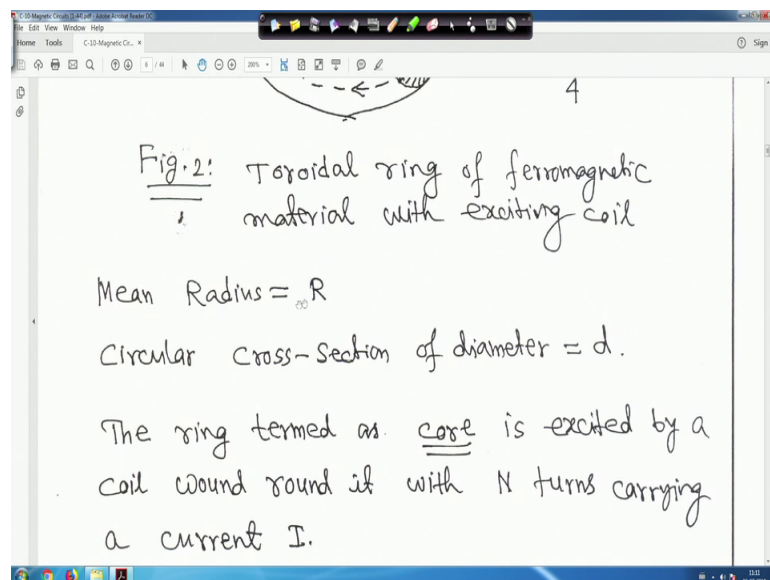 C-10-Magnetic Circuits (1-44).pdf - Adobe Acrobat Reader DC
File Edit View Window Help
Home Tools C-10-Magnetic Cir... × Sign
6 / 44 200%
4
Fig.2: Toroidal ring of ferromagnetic
material with exciting coil
Mean Radius = R
Circular cross-section of diameter = d.
The ring termed as core is excited by a
coil wound round it with N turns carrying
a current I.
11:11